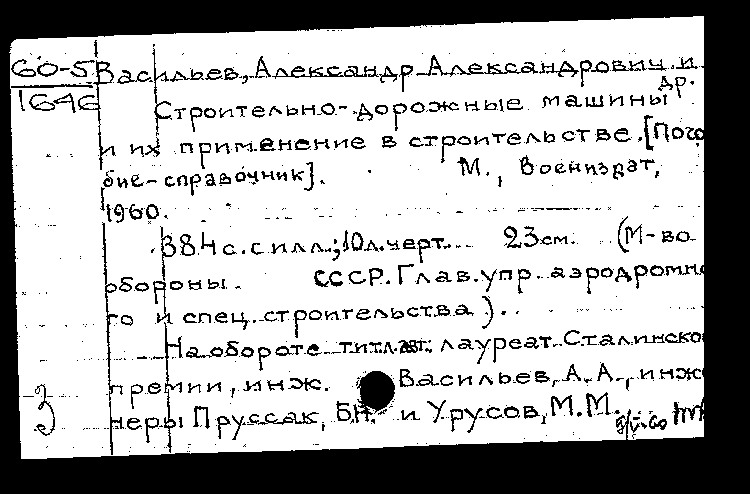 60-5 Васильев, Александр Александрович и
1646 др.
Строительно-дорожные машины
и их применение в строительстве. [Посо
бие-справочник]. М., Воениздат,
1960.
384 с. с илл.; 10 л. черт. 23 см. (М-во
обороны. СССР. Глав. упр. аэродромно
го и спец. строительства).
На обороте тит. л. авт. лауреат Сталинской
премии, инж. Васильев, А. А., инже
3 неры Пруссак, Б.Н. и Урусов, М.М.